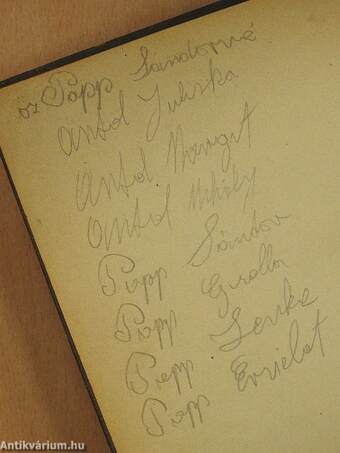 öz Papp Sándorné
Antal Juliska
Antal Margit
Antal Mihály
Papp Sándor
Papp Gizella
Papp Lenke
Papp Erzsébet
Antikvárium.hu